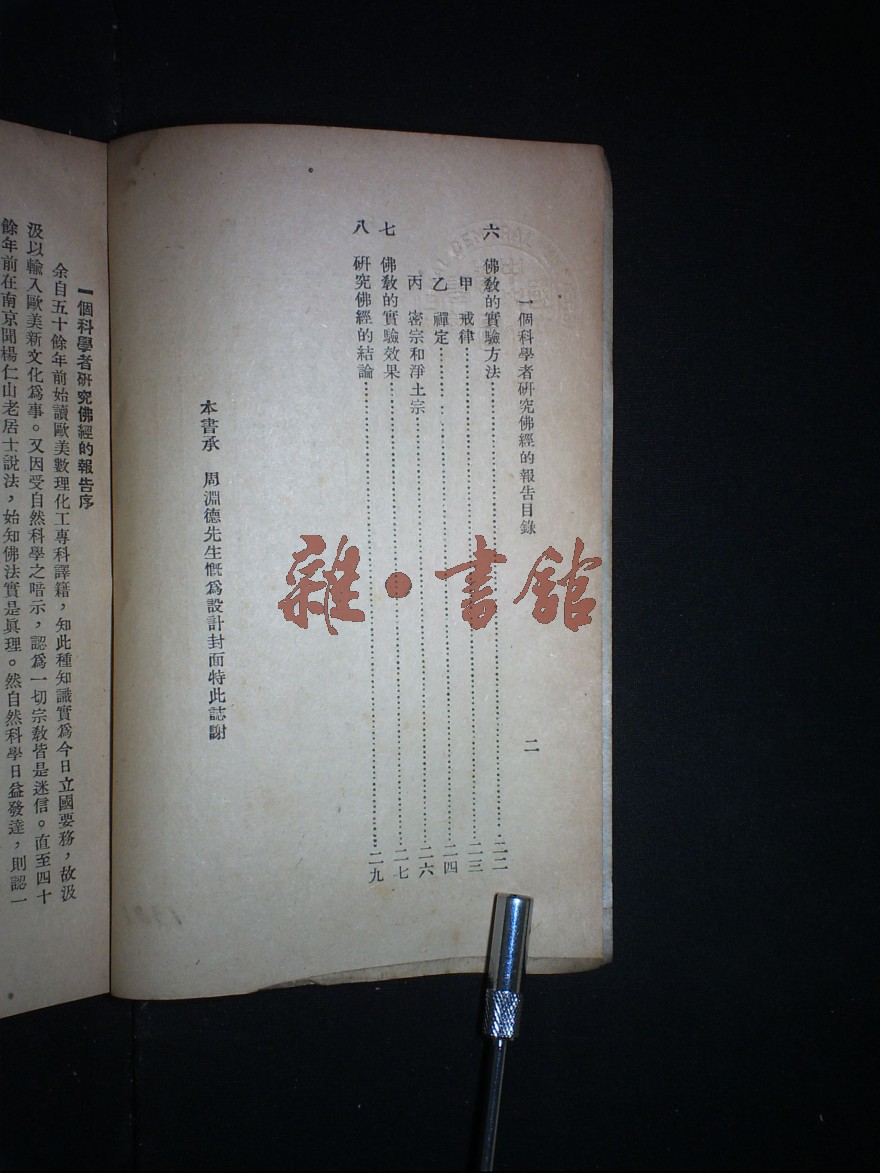 一個科學者研究佛經的報告目錄 二
六 佛教的實驗方法……二二
甲 戒律……二三
乙 禪定……二四
丙 密宗和淨土宗……二六
七 佛教的實驗效果……二七
八 研究佛經的結論……二九
本書承 周淵德先生慨為設計封面特此誌謝
一個科學者研究佛經的報告序
余自五十餘年前始讀歐美數理化工專科譯籍，知此種知識實為今日立國要務，故汲
汲以輸入歐美新文化為事。又因受自然科學之暗示，認為一切宗教皆是迷信。直至四十
餘年前在南京聞楊仁山老居士說法，始知佛法實是真理。然自然科學日益發達，則認一
雜·書館